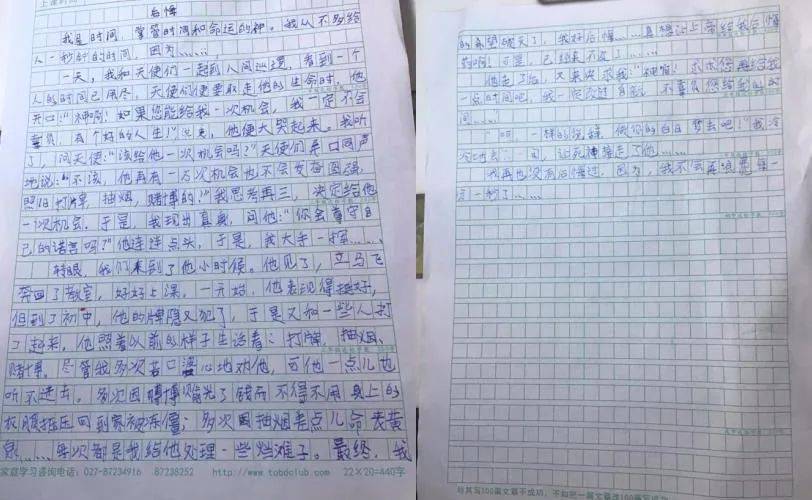 后悔
我是时间,掌管时间和命运的神。我从不多给
人一秒钟的时间,因为……
一天,我和天使们一起到人间巡逻,看到一个
人的时间已用尽,天使们便要取走他的生命时,他
开口:“神啊!如果您能给我一次机会,我一定不会
辜负,有个好的人生!”说完,他便大哭起来。我听
了,问天使:“该给他一次机会吗?”天使们异口同声
地说:“不该,他再有一万次机会也不会发奋图强,
照旧打牌,抽烟,赌博的!”我思考再三,决定给他
一次机会。于是,我现出真身,问他:“你会遵守自
己的诺言吗?”他连连点头,于是,我大手一挥……
转眼,我们来到了他小时候。他见了,立马飞
奔回了教室,好好上课,一开始,他表现得挺好,
但到了初中,他的牌隐又犯了,于是又和一些人打
了起来,他照着以前的样子生活着:打牌,抽烟、
赌博。尽管我多次苦口婆心地劝他,可他一点儿也
听不进去。多次因赌博输光了钱而不得不用身上的
衣服抵压回到家被冻僵;多次因抽烟差点儿命丧黄
泉……每次都是我给他处理一些烂滩子。最终,我
家庭学习咨询电话:027-87234916 87238252 http://www.tobdclub.com 22×20=440字
的希望破灭了,我好后悔……真想让上帝给我后悔
药啊!可是,已经来不及了……
他走了后,又来求我:“神啊!求求您再给我
一点时间吧,我一定改过自新,不辜负您给我的时
间……
“呵,一样的说辞,做你的白日梦去吧!”我冷
冷地丢下一句,让死神接走了他……
我再也没有后悔过,因为,我不会再浪费每一
分一秒了……
与其写100篇文章不成功,不如把一篇文章改100遍写成功